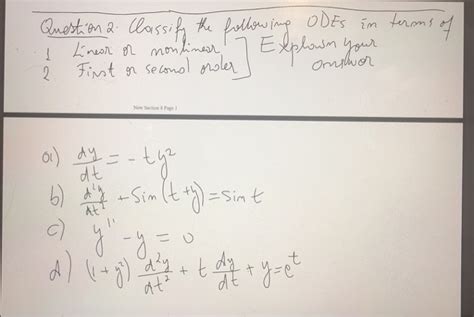 Question 2. Classify the following ODEs in terms of
1 Linear or nonlinear ] Explain your
2 First or second order ] answer
New Section 4 Page 1
a) dy/dt = - ty²
b) d²y/dt² + Sin(t+y) = Sin t
c) y'' - y = 0
d) (1 + y²) d²y/dt² + t dy/dt + y = e^t